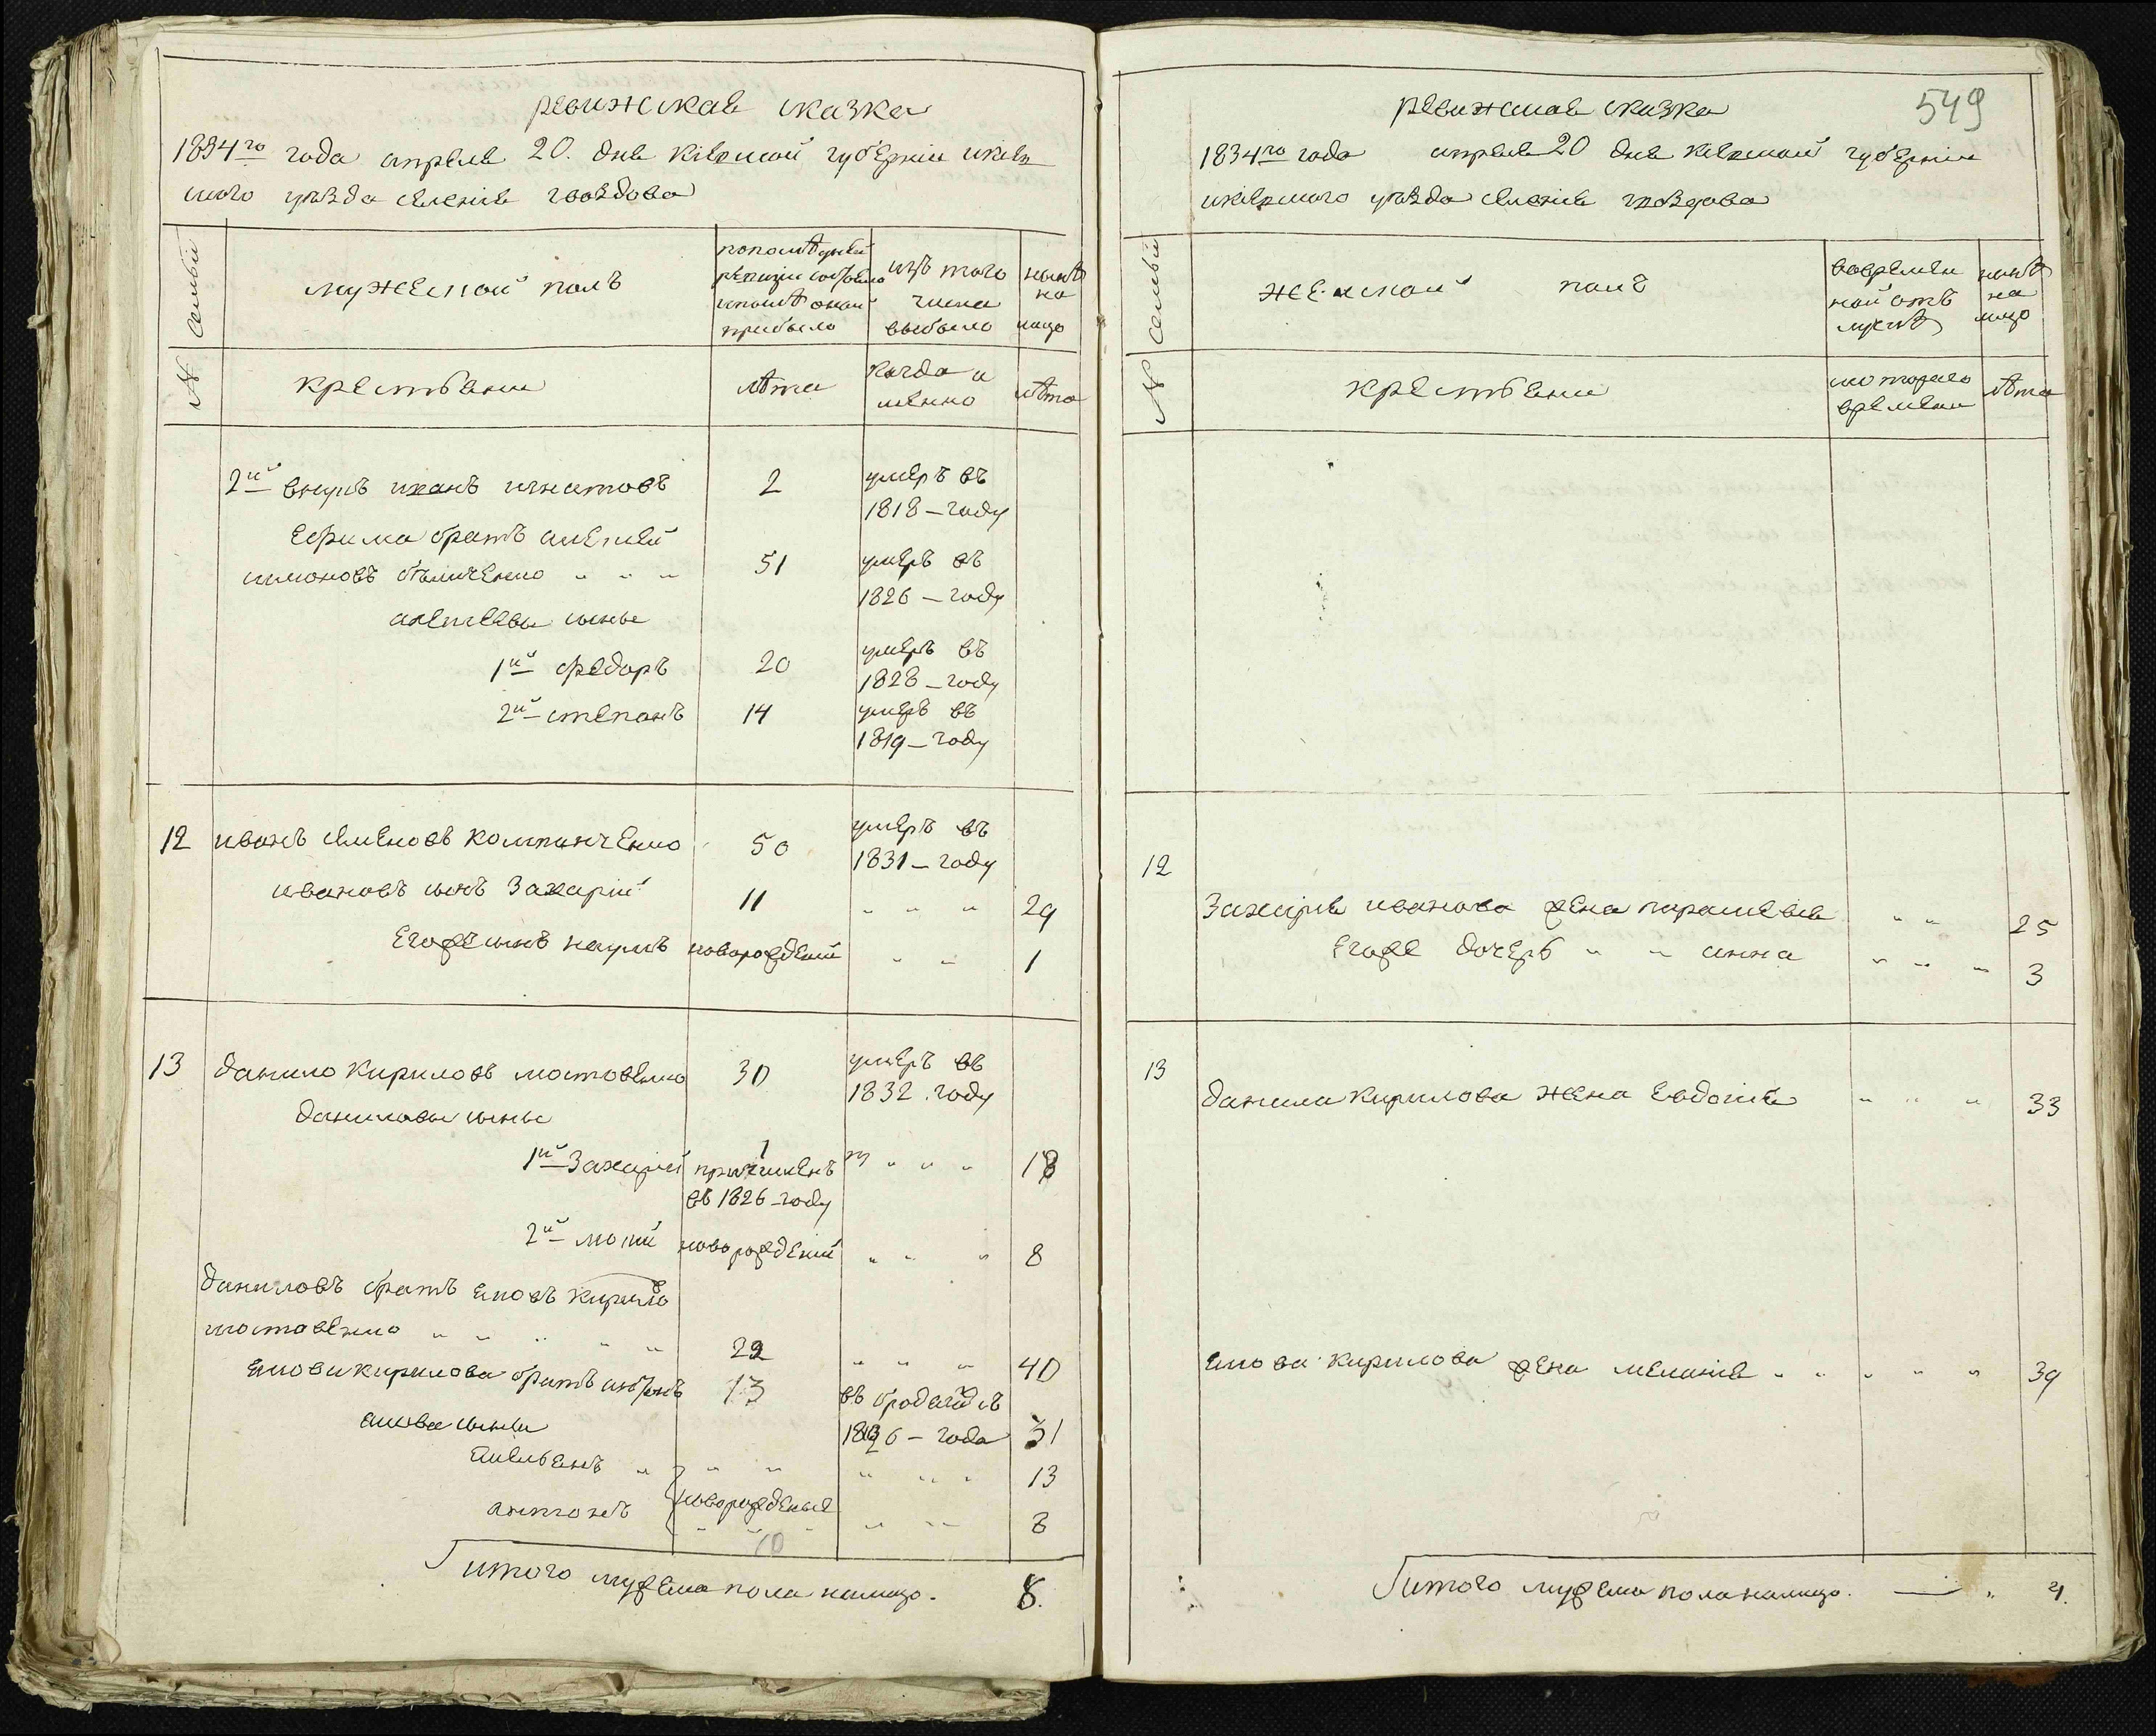 ревижская сказка
1834го года апреля 20. дня Кіевской губерніи
ского уѣзда селенія гвоздова
№ семьи
мужеской полъ
попослѣдней
ревизіи состояло
ипослѣ оной
прибыло
изъ того
числа
выбыло
нынѣ
на
лицо
крестьяни
лѣта
когда и
менно
лѣта
2й внукъ иванъ игнатовъ
2
умеръ въ
1818 – году
Ефима братъ алексей
51
умеръ въ
1826 – году
алексеевы сыны
1й федоръ
20
умеръ въ
1828 – году
2й степанъ
14
умеръ въ
1819 – году
12
иванъ семеновъ
50
умеръ въ
1831 – году
ивановъ сынъ Захарій
11
" " "
29
Егоже сынъ наумъ
новорожденій
" "
1
13
данило Кириловъ
30
умеръ въ
1832. году
даниловы сыны
1й Захарій
1
причисленъ
въ 1826 – году
" " "
18
2й
новорожденій
" " "
8
даниловъ братъ яковъ кирило
" " " " "
22
" " "
40
якова кирилова братъ
13
въ бродягахъ съ
1826 – года
31
якова сыны
" " "
" " "
13
антонъ
новорожденые
" " "
" "
8
10
итого мужеска пола налицо.
8.
549
ревижская сказка
1834го года апреля 20 дня Кіевской губерніи
уѣзда селенія гвоздова
№ семьи
женской полъ
вовремен
ной отъ
лучкѣ
нынѣ
на
лицо
крестьяни
скоторого
времени
лѣта
12
Захарія иванова жена параскевія
" "
25
Егоже дочерь " " анна
" " "
3
13
данила Кирилова жена Евдокія
" " "
33
якова кирилова жена меланія " "
" " "
39
итого мужеска пола налицо. — "
4.